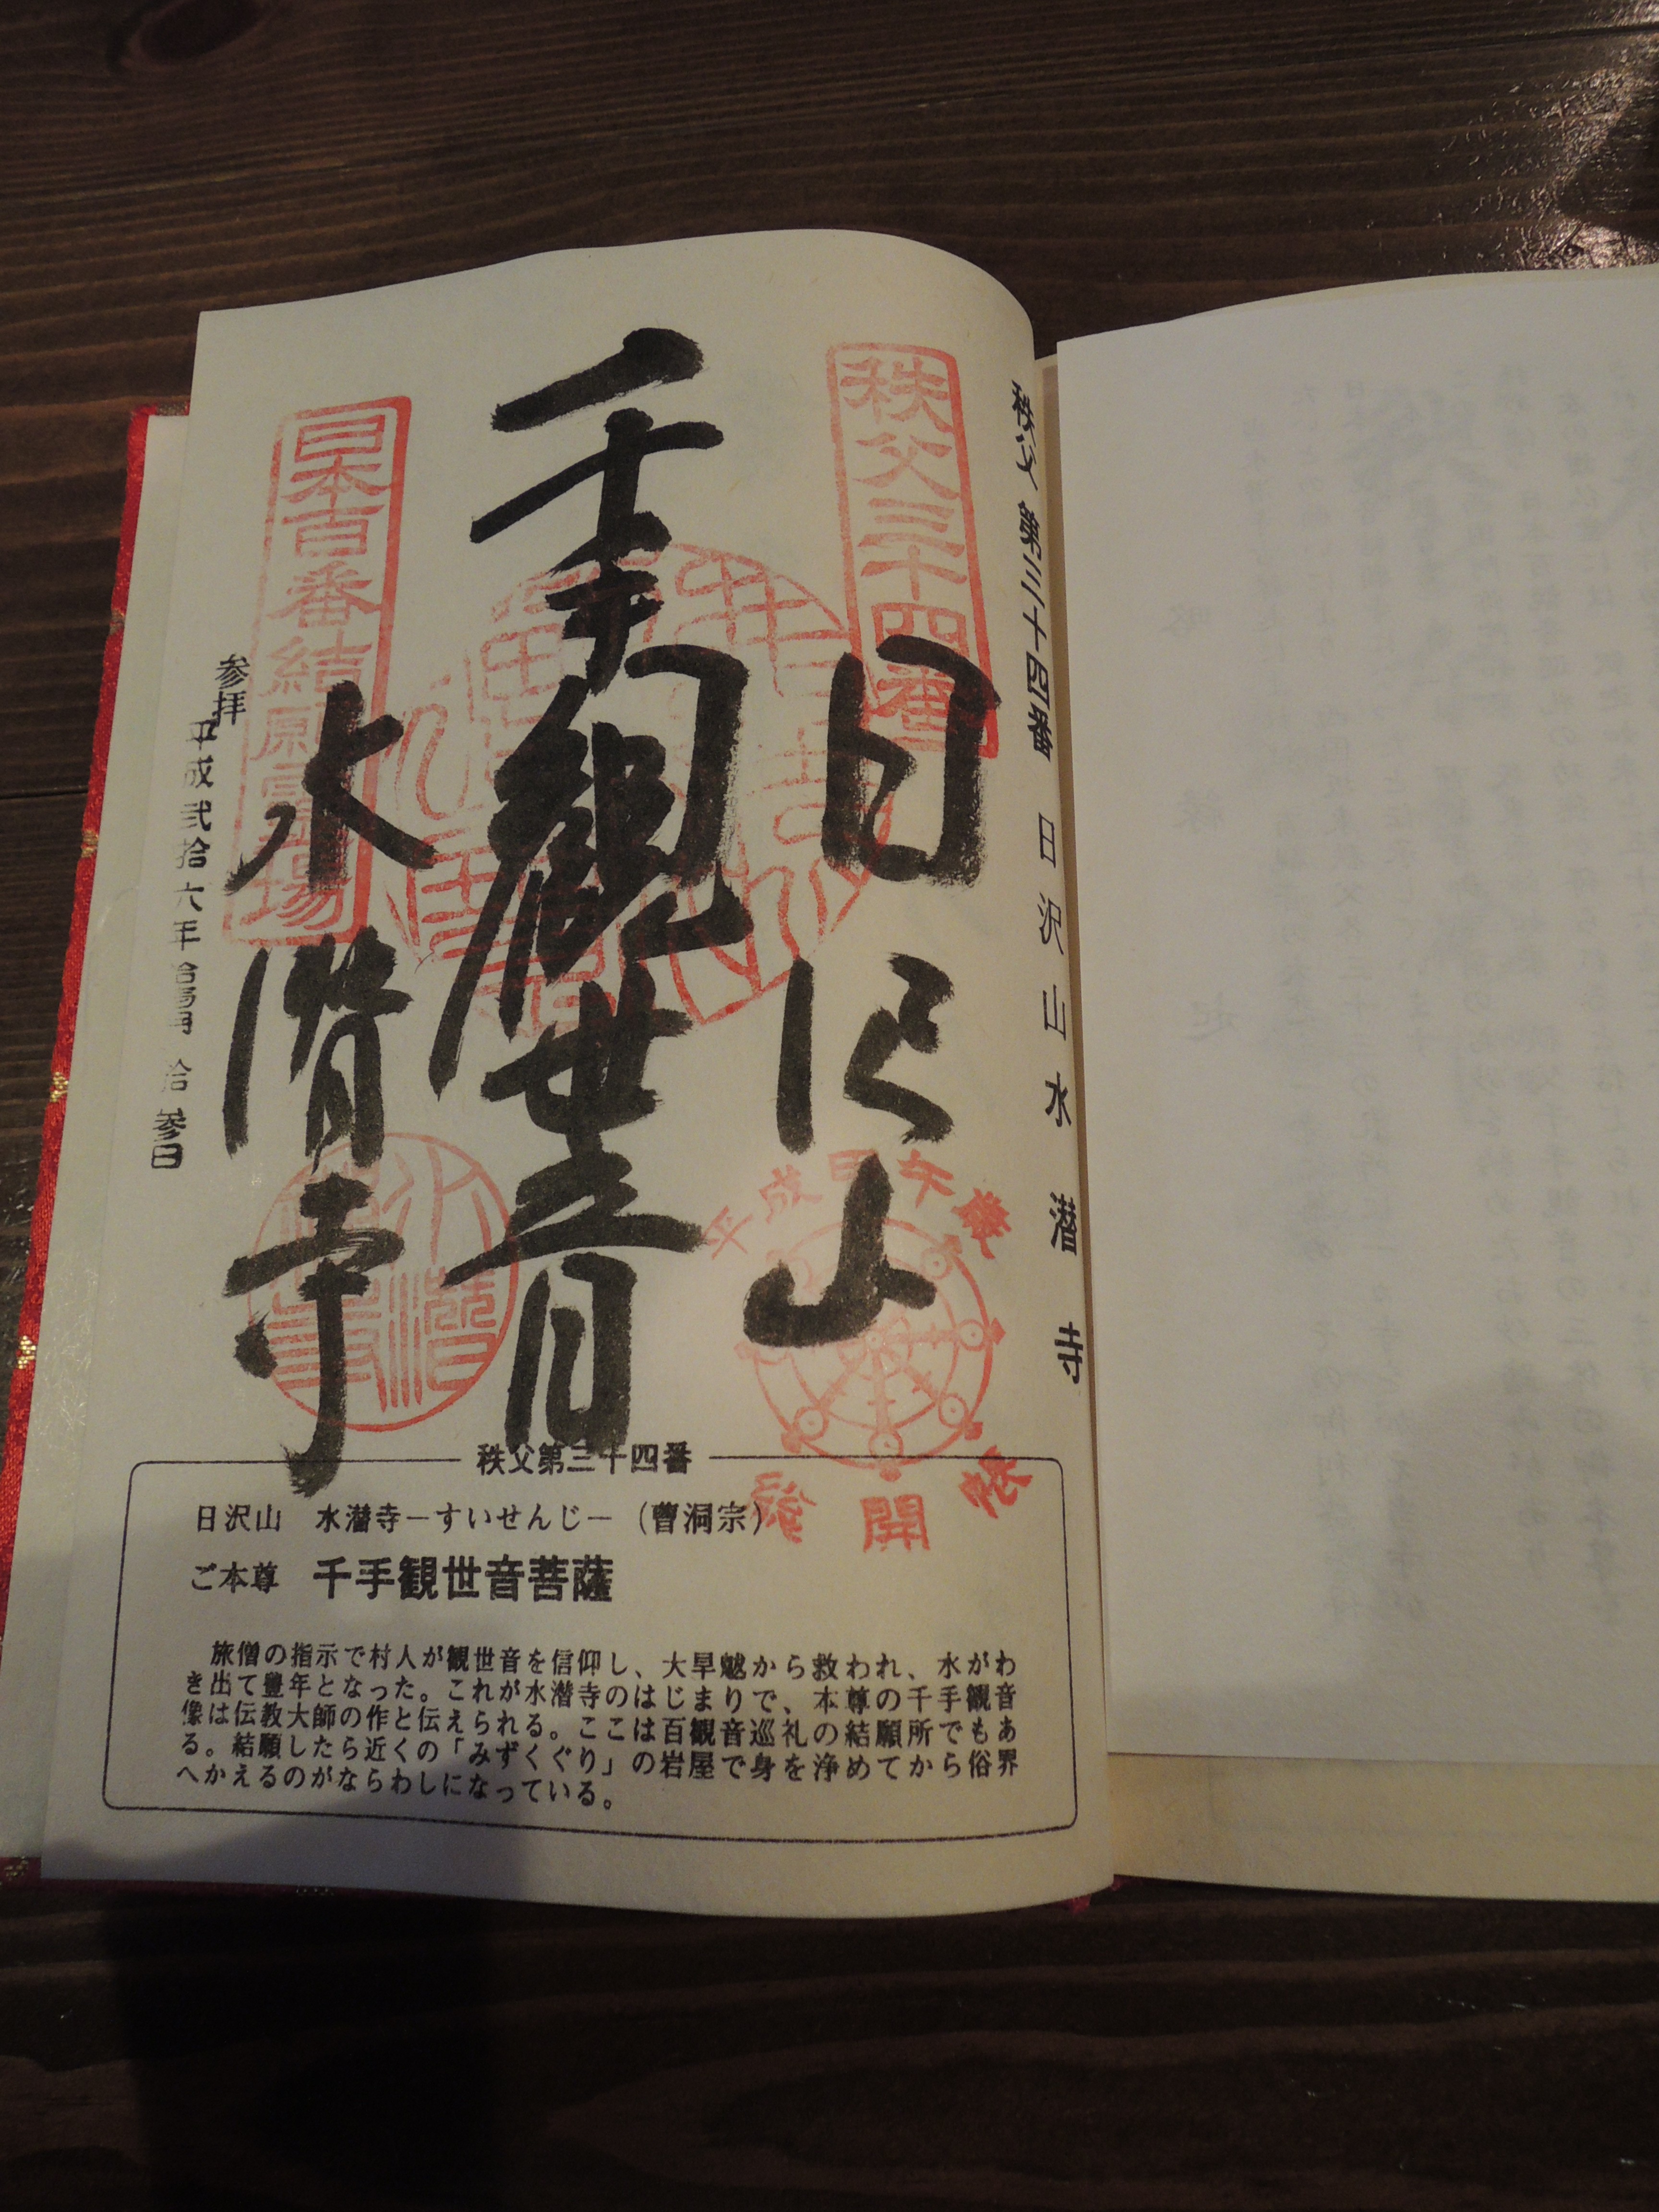 秩父 第三十四番 日沢山水潜寺
秩父三十四番
日沢山
千手観世音
水潜寺
日本百番結願霊場
参拝
平成弐拾六年 拾壱月 拾参日
平成甲午歳
総開帳
水潜寺
秩父第三十四番
日沢山 水潜寺－すいせんじ－（曹洞宗）
ご本尊 千手観世音菩薩
旅僧の指示で村人が観世音を信仰し、大旱魃から救われ、水がわ
き出て豊年となった。これが水潜寺のはじまりで、本尊の千手観音
像は伝教大師の作と伝えられる。ここは百観音巡礼の結願所でもあ
る。結願したら近くの「みずくぐり」の岩屋で身を浄めてから俗界
へかえるのがならわしになっている。